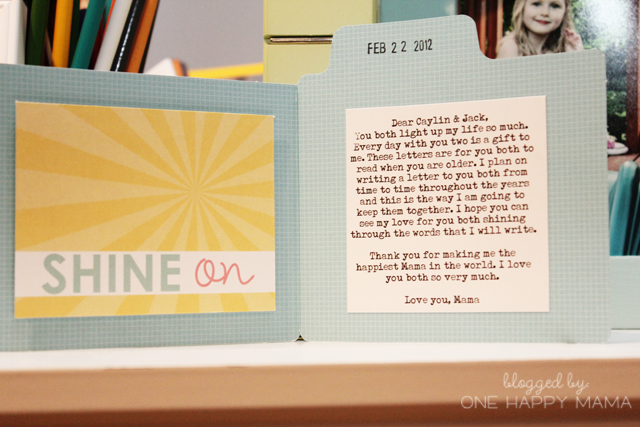 FEB 22 2012
SHINE on
Dear Caylin & Jack,
You both light up my life so much.
Every day with you two is a gift to
me. These letters are for you both to
read when you are older. I plan on
writing a letter to you both from
time to time throughout the years
and this is the way I am going to
keep them together. I hope you can
see my love for you both shining
through the words that I will write.
Thank you for making me the
happiest Mama in the world. I love
you both so very much.
Love you, Mama
blogged by:
ONE HAPPY MAMA